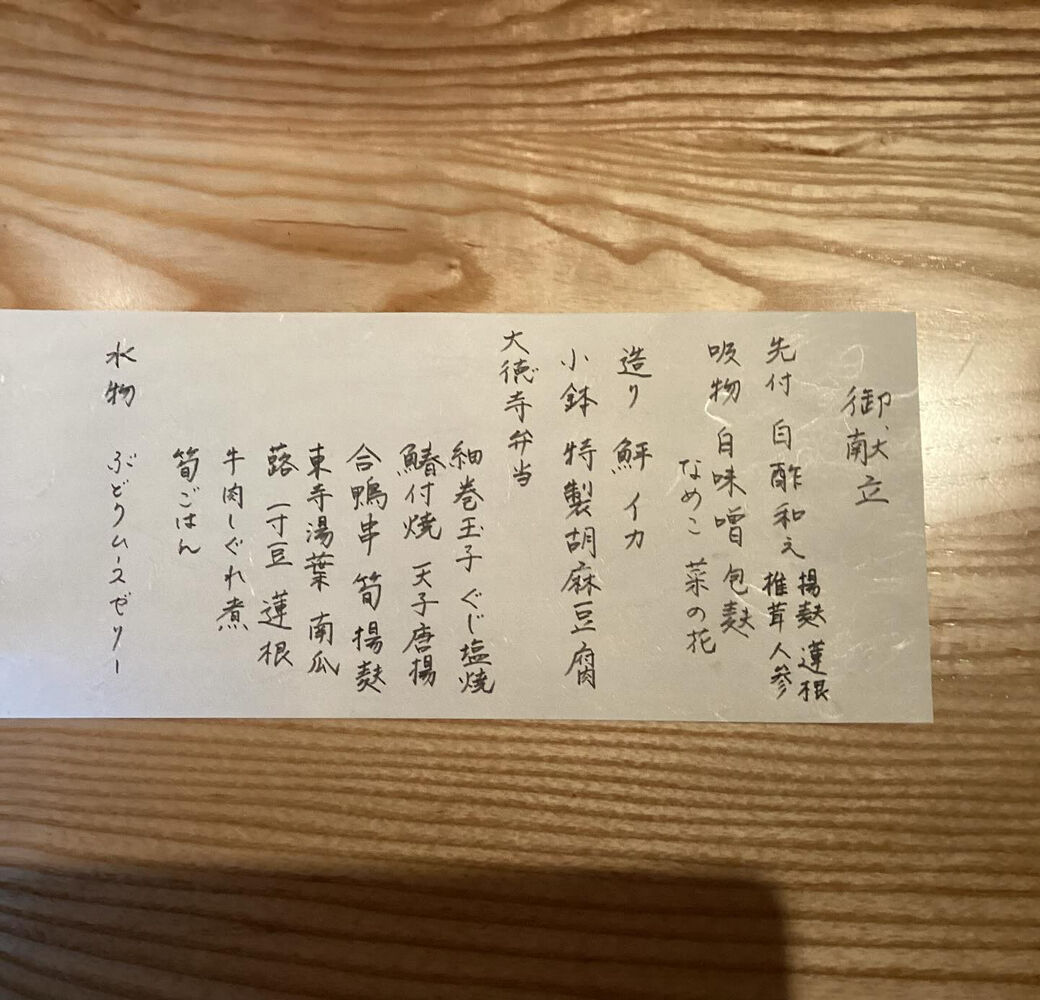 御献立
先付 白酢和え 揚麩 蓮根
椎茸 人参
吸物 白味噌 包麩
なめこ 菜の花
造り 鮃 イカ
小鉢 特製胡麻豆腐
大徳寺弁当
細巻玉子 ぐじ塩焼
鰆付焼 天子唐揚
合鴨串 筍 揚麩
東寺湯葉 南瓜
蕗 一寸豆 蓮根
牛肉しぐれ煮
筍ごはん
水物 ぶどうムースゼリー